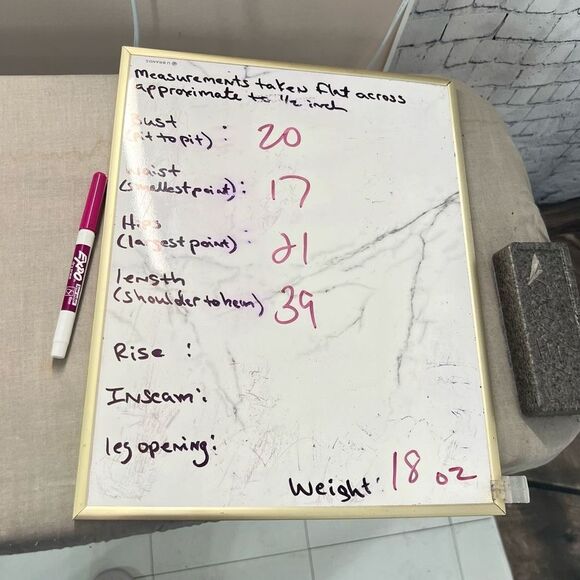 U BRANDS
measurements taken flat across
approximate to 1/2 inch
Bust
(pit to pit) : 20
Waist
(smallest point) : 17
Hips
(largest point) : 21
length
(shoulder to hem) 39
Rise :
Inseam :
leg opening :
Weight : 18 oz
EXPO